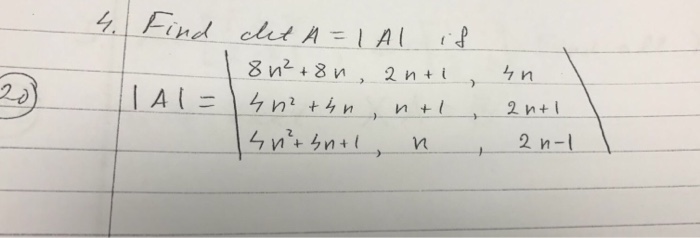 4. Find det A = |A| if
8n² + 8n, 2n+1, 4n
20 |A| = 4n² + 4n, n+1, 2n+1
4n² + 4n+1, n, 2n-1